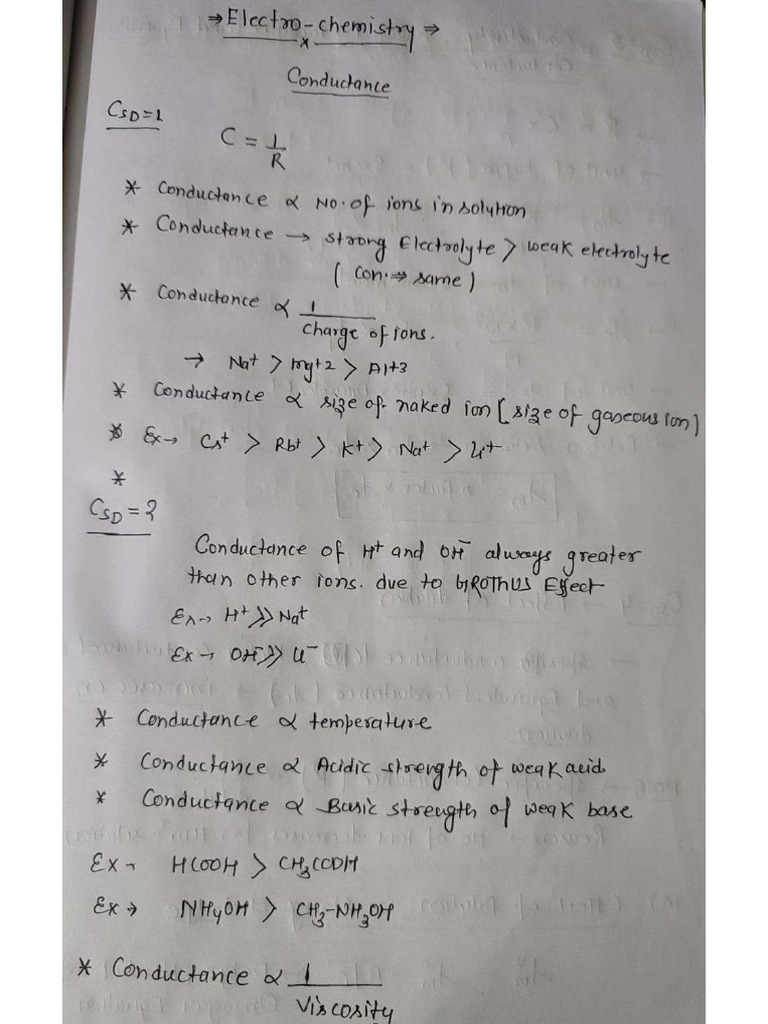 ⇒ Electro-chemistry ⇒
x
Conductance
CSD=1
C = 1/R
* Conductance α No. of ions in solution
* Conductance → strong Electrolyte > weak electrolyte
( Con. ⇒ same )
* Conductance α 1/Charge of ions.
→ Na+ > mg+2 > Al+3
* Conductance α size of naked ion [size of gaseous ion]
* Ex → Cs+ > Rb+ > K+ > Na+ > Li+
*
CSD = 2
Conductance of H+ and OH- always greater
than other ions. due to GROTHUS Effect
Ex → H+ >> Na+
Ex → OH- >> Cl-
* Conductance α temperature
* Conductance α Acidic strength of weak acid
* Conductance α Basic strength of weak base
Ex → HCOOH > CH3COOH
Ex → NH4OH > CH3-NH3OH
* Conductance α 1/Viscosity